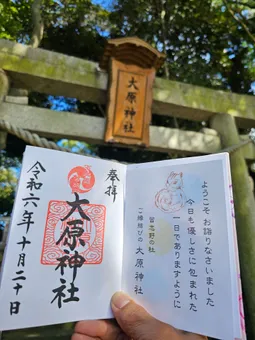 大原神社
奉拝
大原神社
令和六年十月二十日
ようこそお詣りなさいました
今日も優しさに包まれた
一日でありますように
習志野の杜
ご縁結びの大原神社